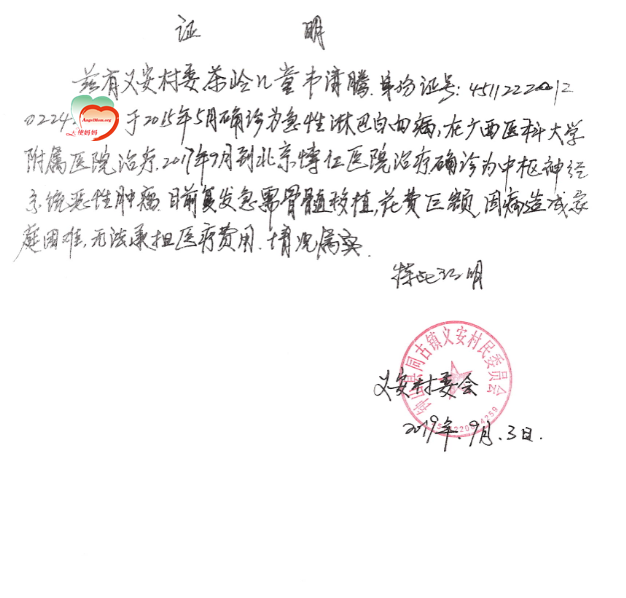 证 明
兹有义安村委茶岭儿童韦濟腾.身份证号:45112220012
0224 于2015年5月确诊为急性淋巴白血病,在广西医科大学
AngelMom.org
天使妈妈
附属医院治疗.2017年9月到北京博仁医院治疗确诊为中枢神经
系统恶性肿瘤.目前复发急需骨髓移植,花费巨额,因病造成家
庭困难,无法承担医疗费用.情况属实.
特此证明
钟山县同古镇义安村民委员会
义安村委会
2019年.9月.3日.